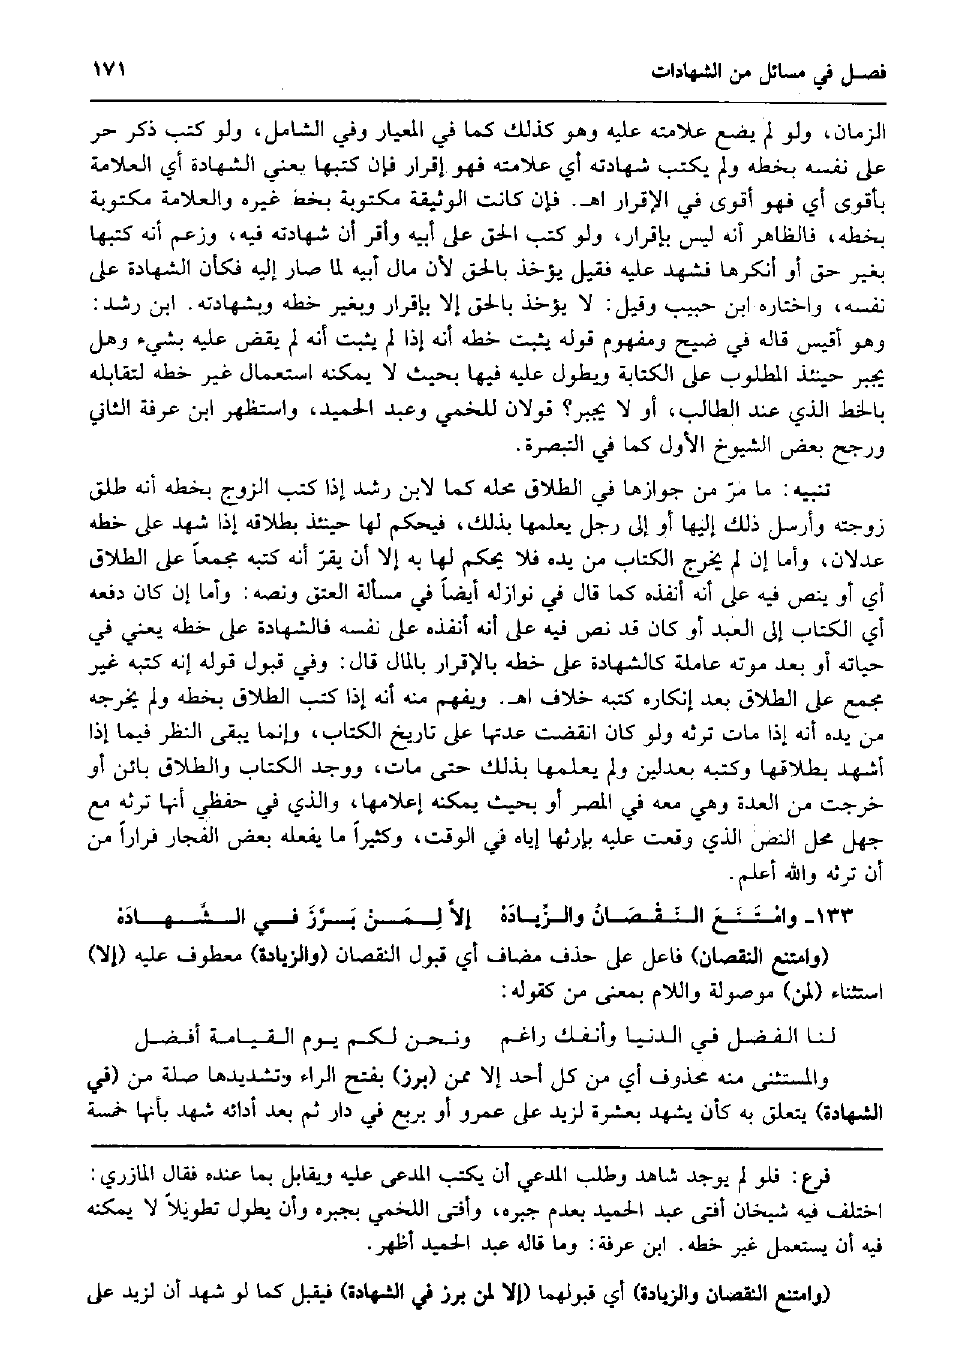 فصل في مسائل من الشهادات ١٧١
الزمان، ولو لم يضع علامته عليه وهو كذلك كما في المعيار وفي الشامل، ولو كتب ذكر حر
على نفسه بخطه ولم يكتب شهادته أي علامته فهو إقرار فإن كتبها يعني الشهادة أي العلامة
بأقوى أي فهو أقوى في الإقرار اهـ. فإن كانت الوثيقة مكتوبة بخط غيره والعلامة مكتوبة
بخطه، فالظاهر أنه ليس بإقرار، ولو كتب الحق على أبيه وأقر أن شهادته فيه، وزعم أنه كتبها
بغير حق أو أنكرها فشهد عليه فقيل يؤخذ بالحق لأن مال أبيه لما صار إليه فكأن الشهادة على
نفسه، واختاره ابن حبيب وقيل: لا يؤخذ بالحق إلا بإقرار وبغير خطه وبشهادته. ابن رشد:
وهو أقيس قاله في ضيح ومفهوم قوله يثبت خطه أنه إذا لم يثبت أنه لم يقض عليه بشيء وهل
يجبر حينئذ المطلوب على الكتابة ويطول عليه فيها بحيث لا يمكنه استعمال غير خطه لتقابله
بالخط الذي عند الطالب، أو لا يجبر؟ قولان للخمي وعبد الحميد، واستظهر ابن عرفة الثاني
ورجح بعض الشيوخ الأول كما في التبصرة.
تنبيه: ما مرّ من جوازها في الطلاق محله كما لابن رشد إذا كتب الزوج بخطه أنه طلق
زوجته وأرسل ذلك إليها أو إلى رجل يعلمها بذلك، فيحكم لها حينئذ بطلاقه إذا شهد على خطه
عدلان، وأما إن لم يخرج الكتاب من يده فلا يحكم لها به إلا أن يقرّ أنه كتبه مجمعاً على الطلاق
أي أو ينص فيه على أنه أنفذه كما قال في نوازله أيضاً في مسألة العتق ونصه: وأما إن كان دفعه
أي الكتاب إلى العبد أو كان قد نص فيه على أنه أنفذه على نفسه فالشهادة على خطه يعني في
حياته أو بعد موته عاملة كالشهادة على خطه بالإقرار بالمال قال: وفي قبول قوله إنه كتبه غير
مجمع على الطلاق بعد إنكاره كتبه خلاف اهـ. ويفهم منه أنه إذا كتب الطلاق بخطه ولم يخرجه
من يده أنه إذا مات ترثه ولو كان انقضت عدتها على تاريخ الكتاب، وإنما يبقى النظر فيما إذا
أشهد بطلاقها وكتبه بعدلين ولم يعلمها بذلك حتى مات، ووجد الكتاب والطلاق بائن أو
خرجت من العدة وهي معه في المصر أو بحيث يمكنه إعلامها، والذي في حفظي أنها ترثه مع
جهل محل النص الذي وقعت عليه بإرثها إياه في الوقت، وكثيراً ما يفعله بعض الفجار فراراً من
أن ترثه والله أعلم.
١٣٣ـ وامْتَنَعَ النَقْصَانُ والزِّيادَهْ إلاَّ لِمَنْ بَرَّزَ في الشَّهادَهْ
(وامتنع النقصان) فاعل على حذف مضاف أي قبول النقصان (والزيادة) معطوف عليه (إلا)
استثناء (لمن) موصولة واللام بمعنى من كقوله:
لنا الفضل في الدنيا وأنفك راغم ونحن لكم يوم القيامة أفضل
والمستثنى منه محذوف أي من كل أحد إلا ممن (برز) بفتح الراء وتشديدها صلة من (في
الشهادة) يتعلق به كأن يشهد بعشرة لزيد على عمرو أو بربع في دار ثم بعد أدائه شهد بأنها خمسة
فرع: فلو لم يوجد شاهد وطلب المدعي أن يكتب المدعى عليه ويقابل بما عنده فقال المازري:
اختلف فيه شيخان أفتى عبد الحميد بعدم جبره، وأفتى اللخمي بجبره وأن يطول تطويلاً لا يمكنه
فيه أن يستعمل غير خطه. ابن عرفة: وما قاله عبد الحميد أظهر.
(وامتنع النقصان والزيادة) أي قبولهما (إلا لمن برز في الشهادة) فيقبل كما لو شهد أن لزيد على